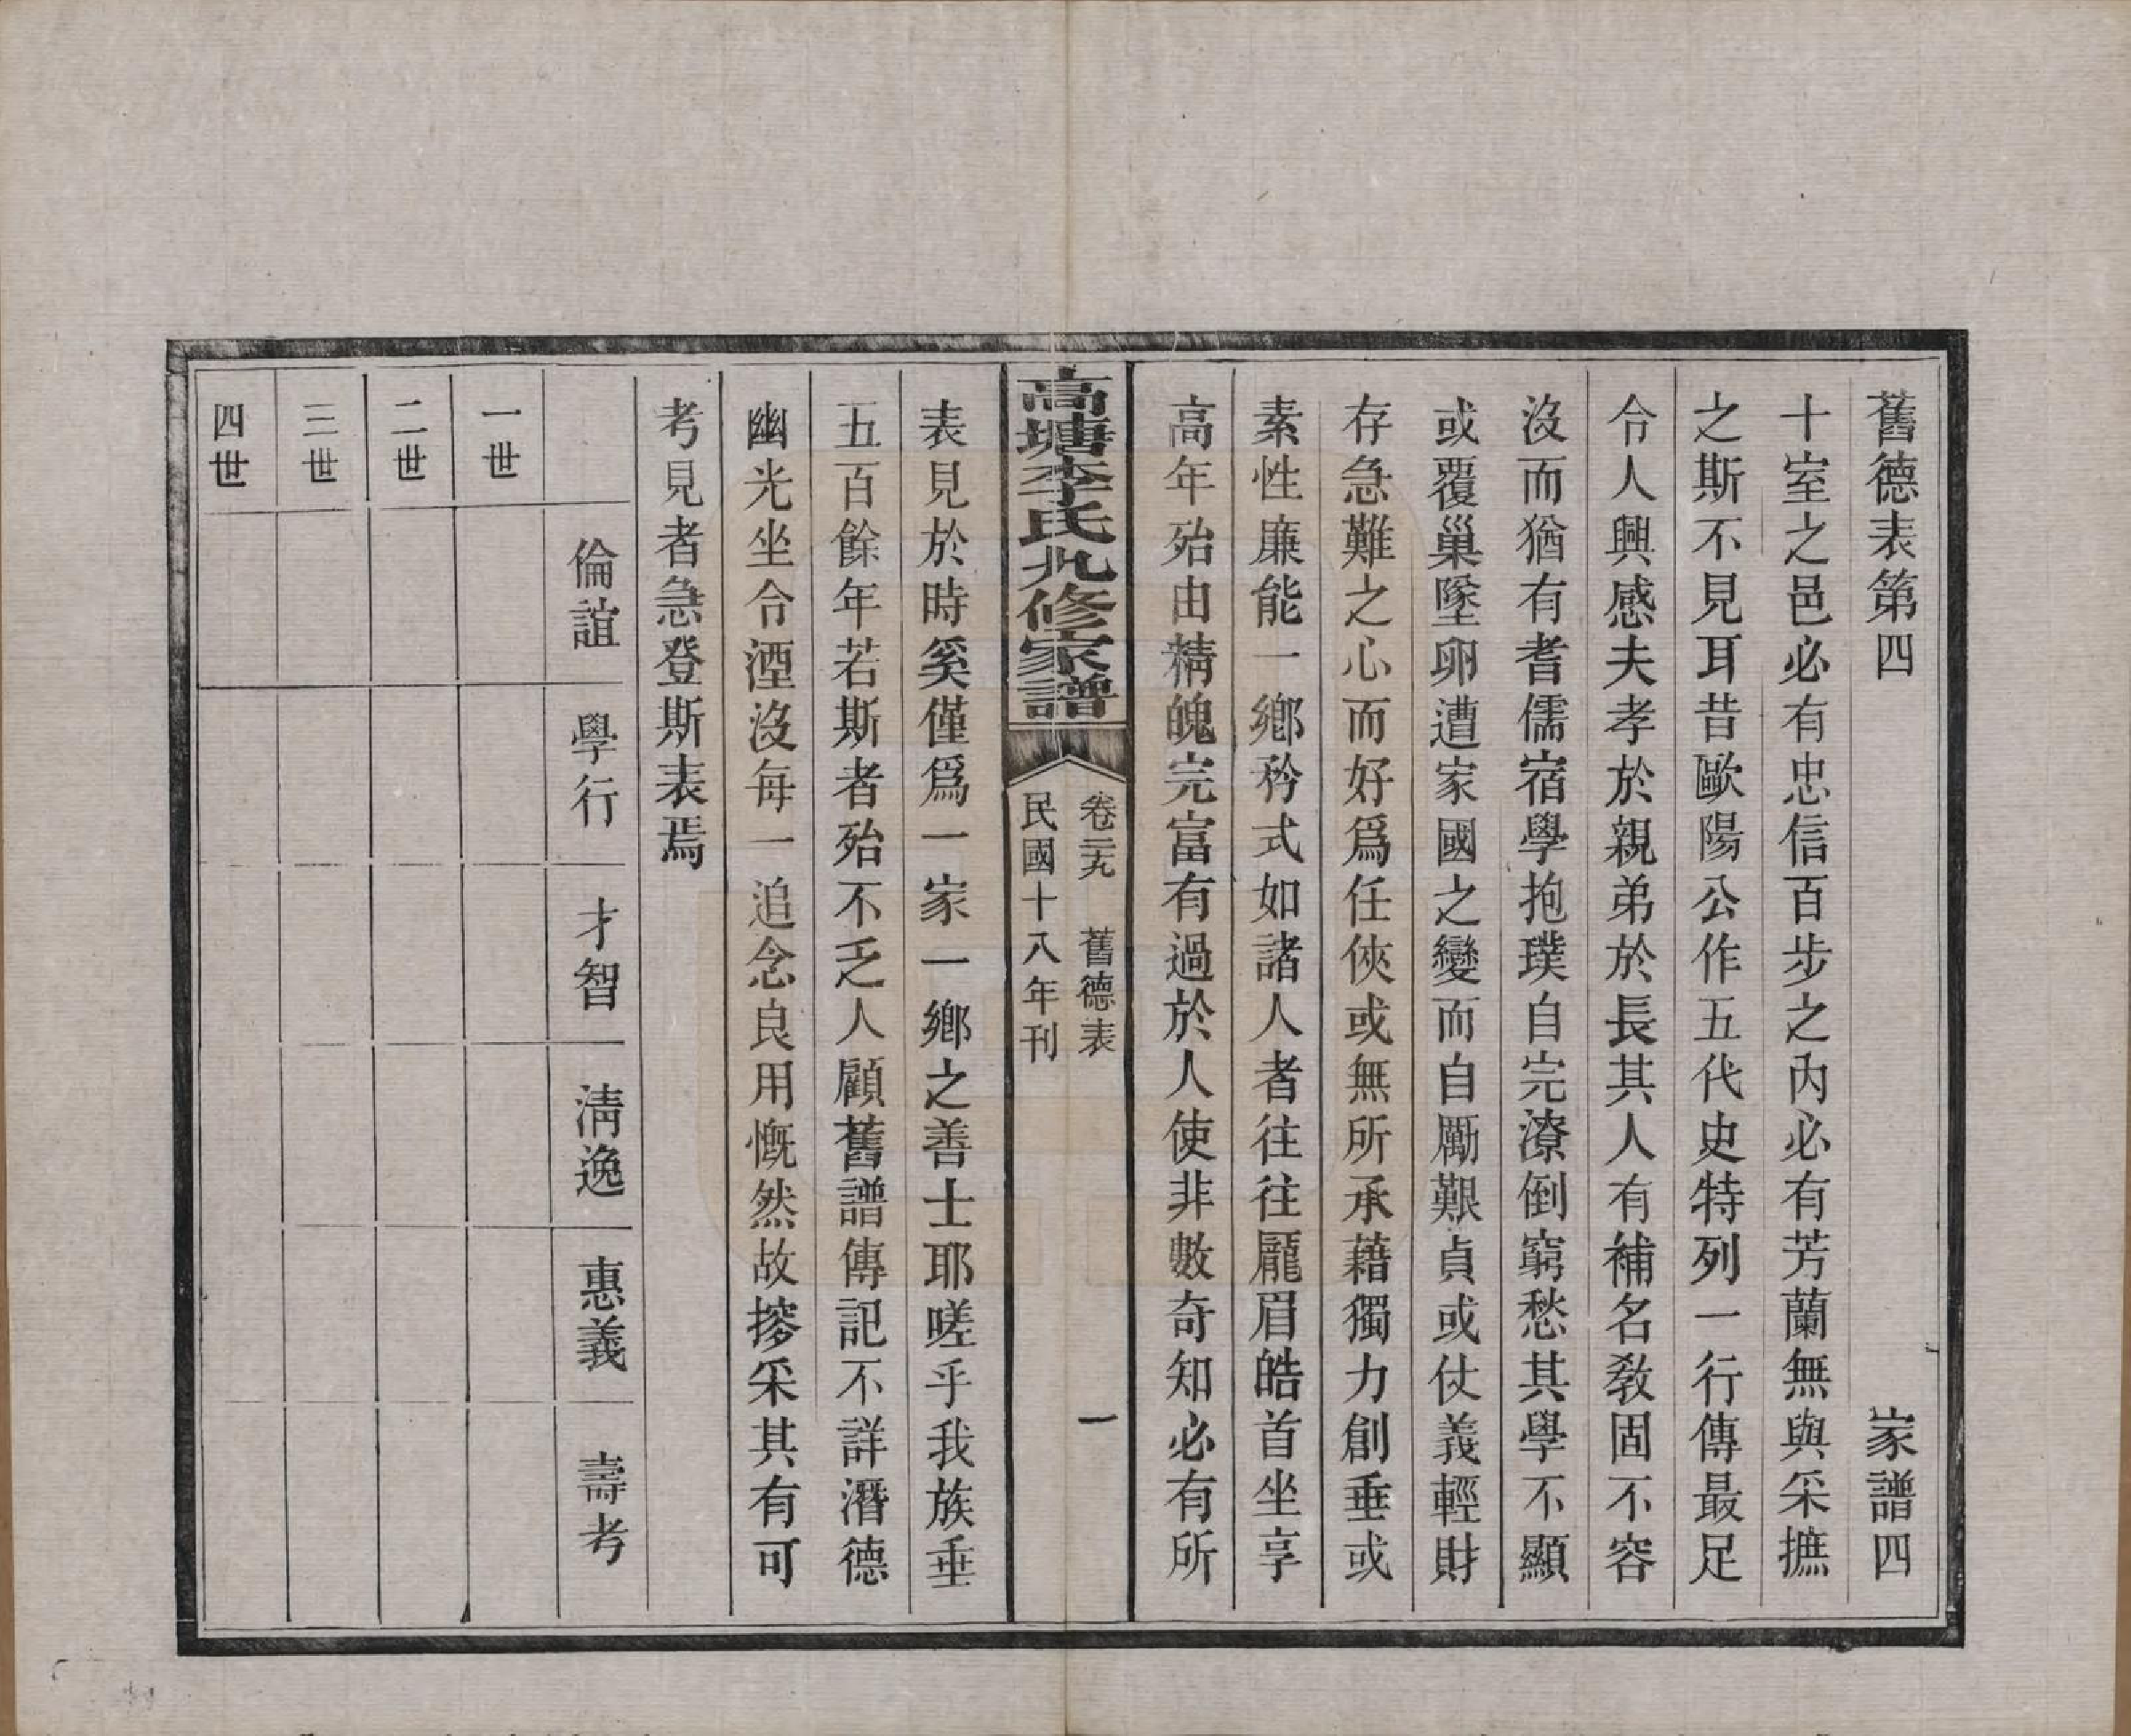 舊德表第四　家譜四
十室之邑必有忠信百步之內必有芳蘭無與采摭
之斯不見耳昔歐陽公作五代史特列一行傳最足
令人興感夫孝於親弟於長其人有補名敎固不容
沒而猶有耆儒宿學抱璞自完潦倒窮愁其學不顯
或覆巢墜卵遭家國之變而自勵艱貞或仗義輕財
存急難之心而好爲任俠或無所承藉獨力創垂或
素性廉能一鄉矜式如諸人者往往龎眉皓首坐享
高年殆由精魄完富有過於人使非數奇知必有所
高塘李氏九修家譜
卷三十九　舊德表　一
民國十八年刊
表見於時奚僅爲一家一鄉之善士耶嗟乎我族垂
五百餘年若斯者殆不乏人顧舊譜傳記不詳潛德
幽光坐令湮沒每一追念良用慨然故摉采其有可
考見者急登斯表焉
倫誼　學行　才智　淸逸　惠義　壽考
一世
二世
三世
四世